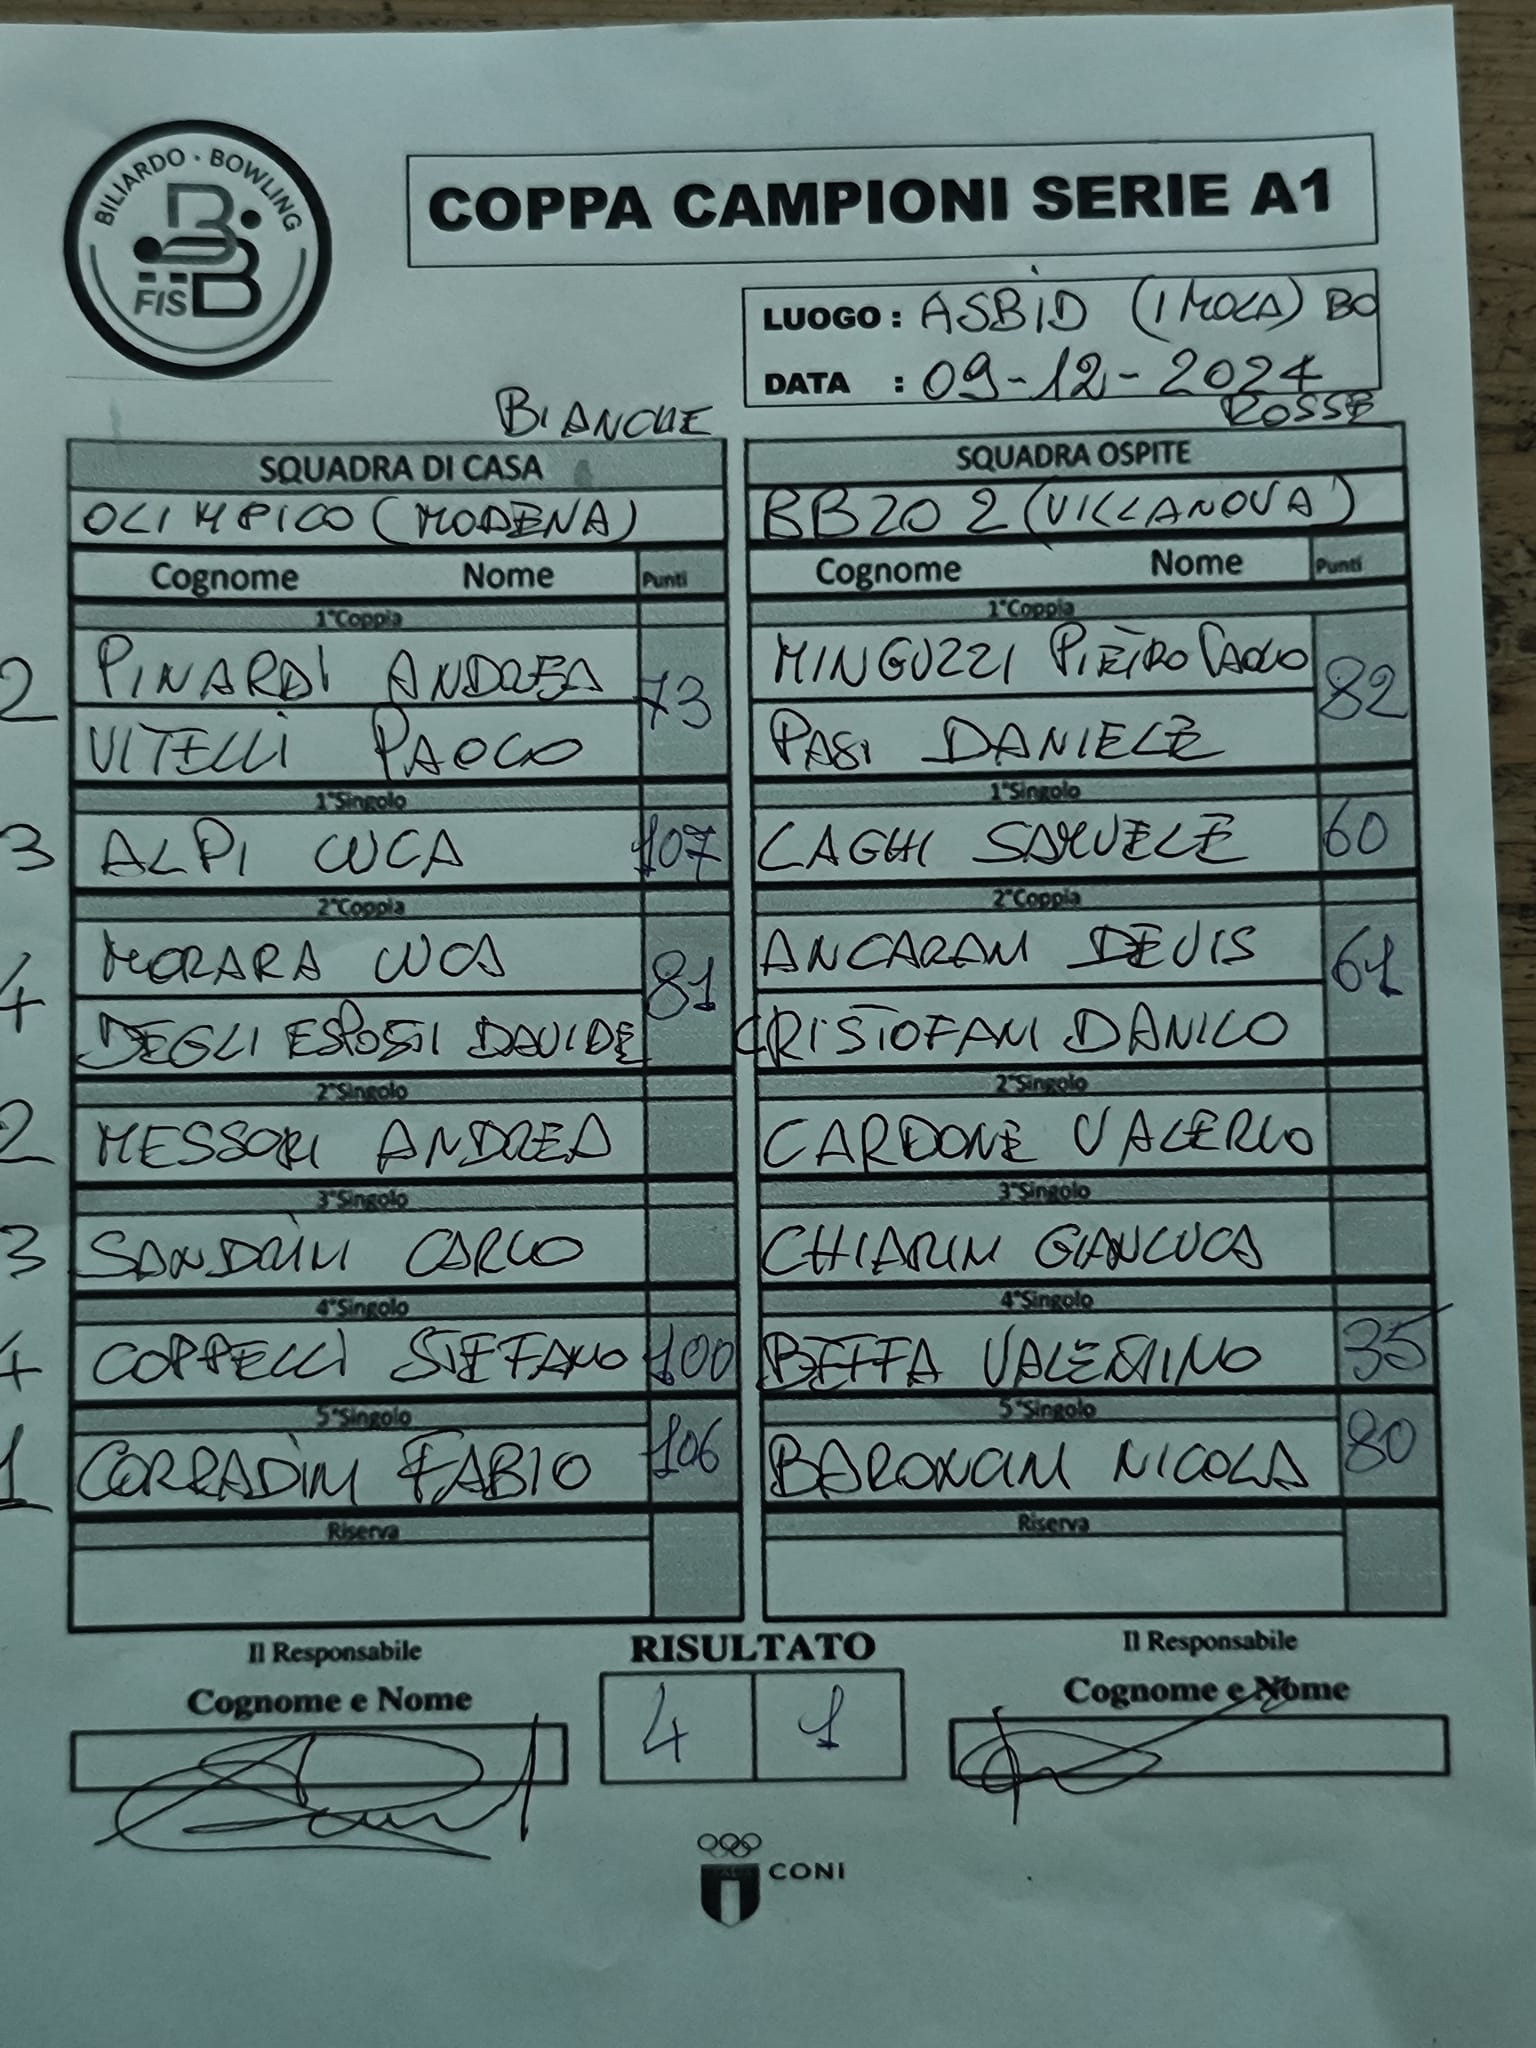 BILIARDO · BOWLING
FISBB
COPPA CAMPIONI SERIE A1
LUOGO : ASBID (IMOLA) BO
DATA : 09-12-2024
BIANCHE
ROSSE
SQUADRA DI CASA
OLIMPICO (MODENA)
Cognome Nome Punti
1°Coppia
2 PINARDI ANDREA 73
VITELLI PAOLO
1°Singolo
3 ALPI LUCA 107
2°Coppia
4 MORARA LUCA 81
DEGLI ESPOSTI DAVIDE
2°Singolo
2 MESSORI ANDREA
3°Singolo
3 SANDRINI CARLO
4°Singolo
4 COPPELLI STEFANO 100
5°Singolo
1 CORRADINI FABIO 106
Riserva
SQUADRA OSPITE
BB20 2 (VILLANOVA)
Cognome Nome Punti
1°Coppia
MINGUZZI PIETRO PAOLO 82
PASI DANIELE
1°Singolo
LAGHI SAMUELE 60
2°Coppia
ANCARANI DEVIS 61
CRISTOFANI DANILO
2°Singolo
CARDONE VALERIO
3°Singolo
CHIARINI GIANLUCA
4°Singolo
BETTA VALENTINO 35
5°Singolo
BARONCINI NICOLA 80
Riserva
Il Responsabile
Cognome e Nome
RISULTATO
4 1
Il Responsabile
Cognome e Nome
CONI